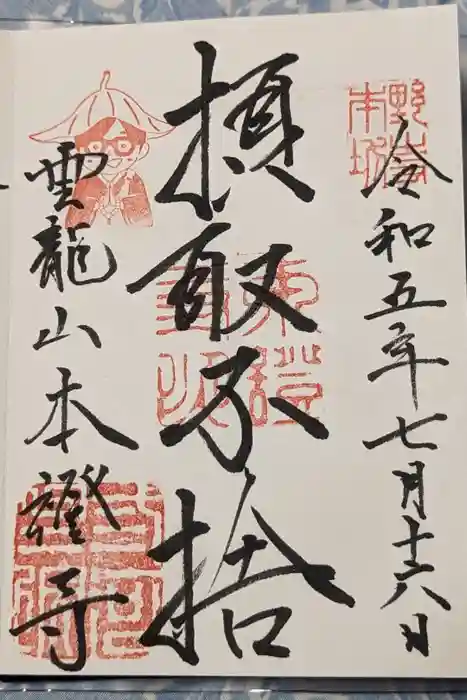 令和五年七月十六日
摂取不捨
雲龍山本證寺
野寺
本坊